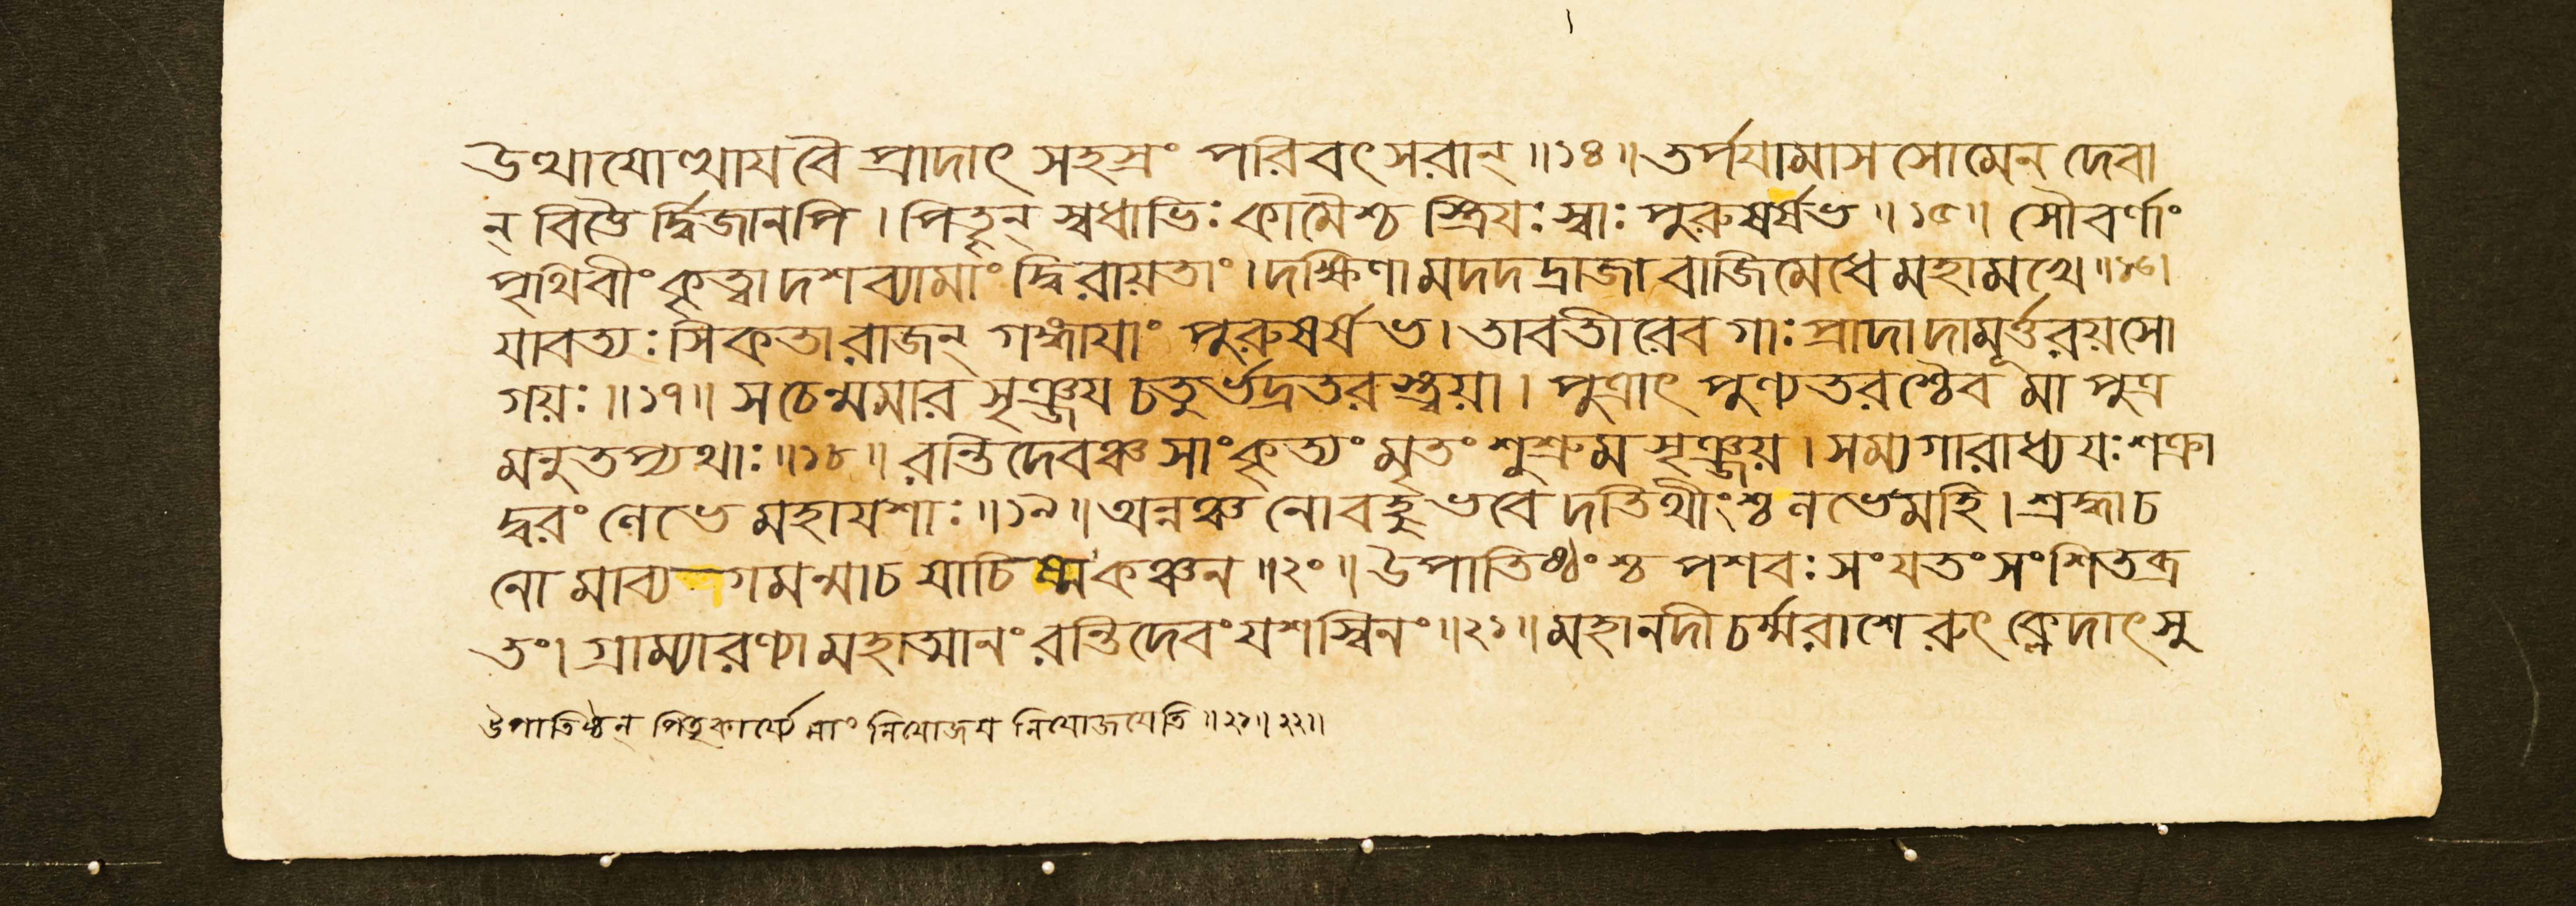 উত্থাযোত্থায বৈ প্রাদাৎ সহস্রং পরিবৎসরান্ ॥১৪॥ তর্পযামাস সোমেন দেবা
ন্ বিত্তৈর্দ্বিজানপি । পিতৄন্ স্বধাভিঃ কামৈশ্চ স্ত্রিযঃ স্বাঃ পুরুষর্ষভ ॥১৫॥ সৌবর্ণাং
পৃথিবীং কৃত্বা দশব্যামাং দ্বিরায়তাং । দক্ষিণামদদদ্রাজা বাজিমেধে মহামখে ॥১৬।
যাবত্যঃ সিকতা রাজন্ গঙ্গাযাং পুরুষর্ষভ । তাবতীরেব গাঃ প্রাদাদামূর্ত্তরয়সো
গয়ঃ ॥১৭॥ স চেন্মমার সৃঞ্জয চতুর্ভদ্রতরস্ত্বয়া । পুত্রাৎ পুণ্যতরশ্চৈব মা পুত্র
মনুতপ্যথাঃ ॥১৮॥ রন্তিদেবঞ্চ সাংকৃত্যং মৃতং শুশ্রুম সৃঞ্জয় । সম্যগারাধ্য যঃ শক্রা
দ্বরং লেভে মহাযশাঃ ॥১৯॥ অন্নঞ্চ নো বহু ভবেদতিথীংশ্চ লভেমহি । শ্রদ্ধা চ
নো মা ব্যগমন্মা চ যাচিষ্ম কঞ্চন ॥২০॥ উপাতিষ্ঠংশ্চ পশবঃ সংযতং সংশিতব্র
তং । গ্রাম্যারণ্যা মহাত্মানং রন্তিদেবং যশস্বিনং ॥২১॥ মহানদী চর্ম্মরাশেরুৎক্লেদাৎ সু
উপাতিষ্ঠন্ পিতৃকার্য্যে মাং নিযোজয নিযোজযেতি ॥২১॥২২॥